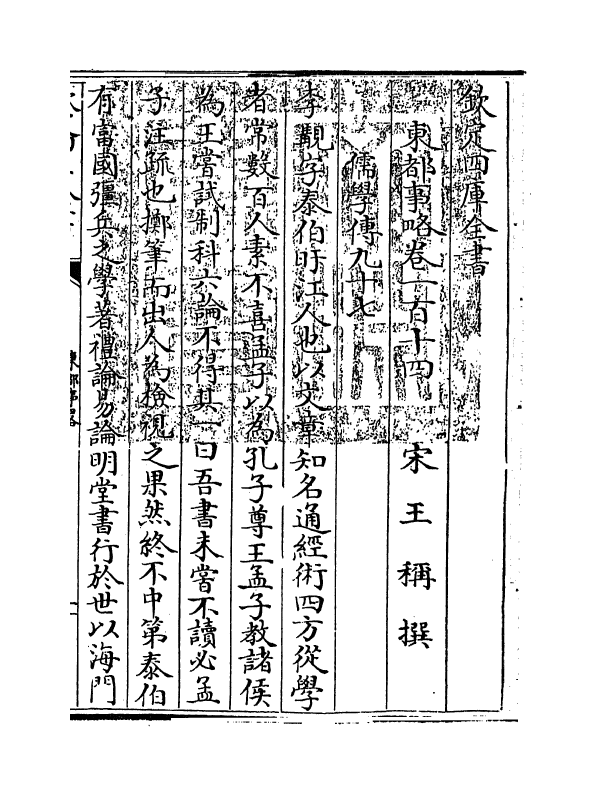 欽定四庫全書
東都事略卷一百十四　宋王稱撰
儒學傳九十七
李覯字泰伯盱江人也以文章知名通經術四方從學
者常數百人素不喜孟子以為孔子尊王孟子教諸侯
為王嘗試制科六論不得其一曰吾書未嘗不讀必孟
子注疏也擲筆而出人為檢視之果然終不中第泰伯
有富國彊兵之學著禮論易論明堂書行於世以海門
東都事略